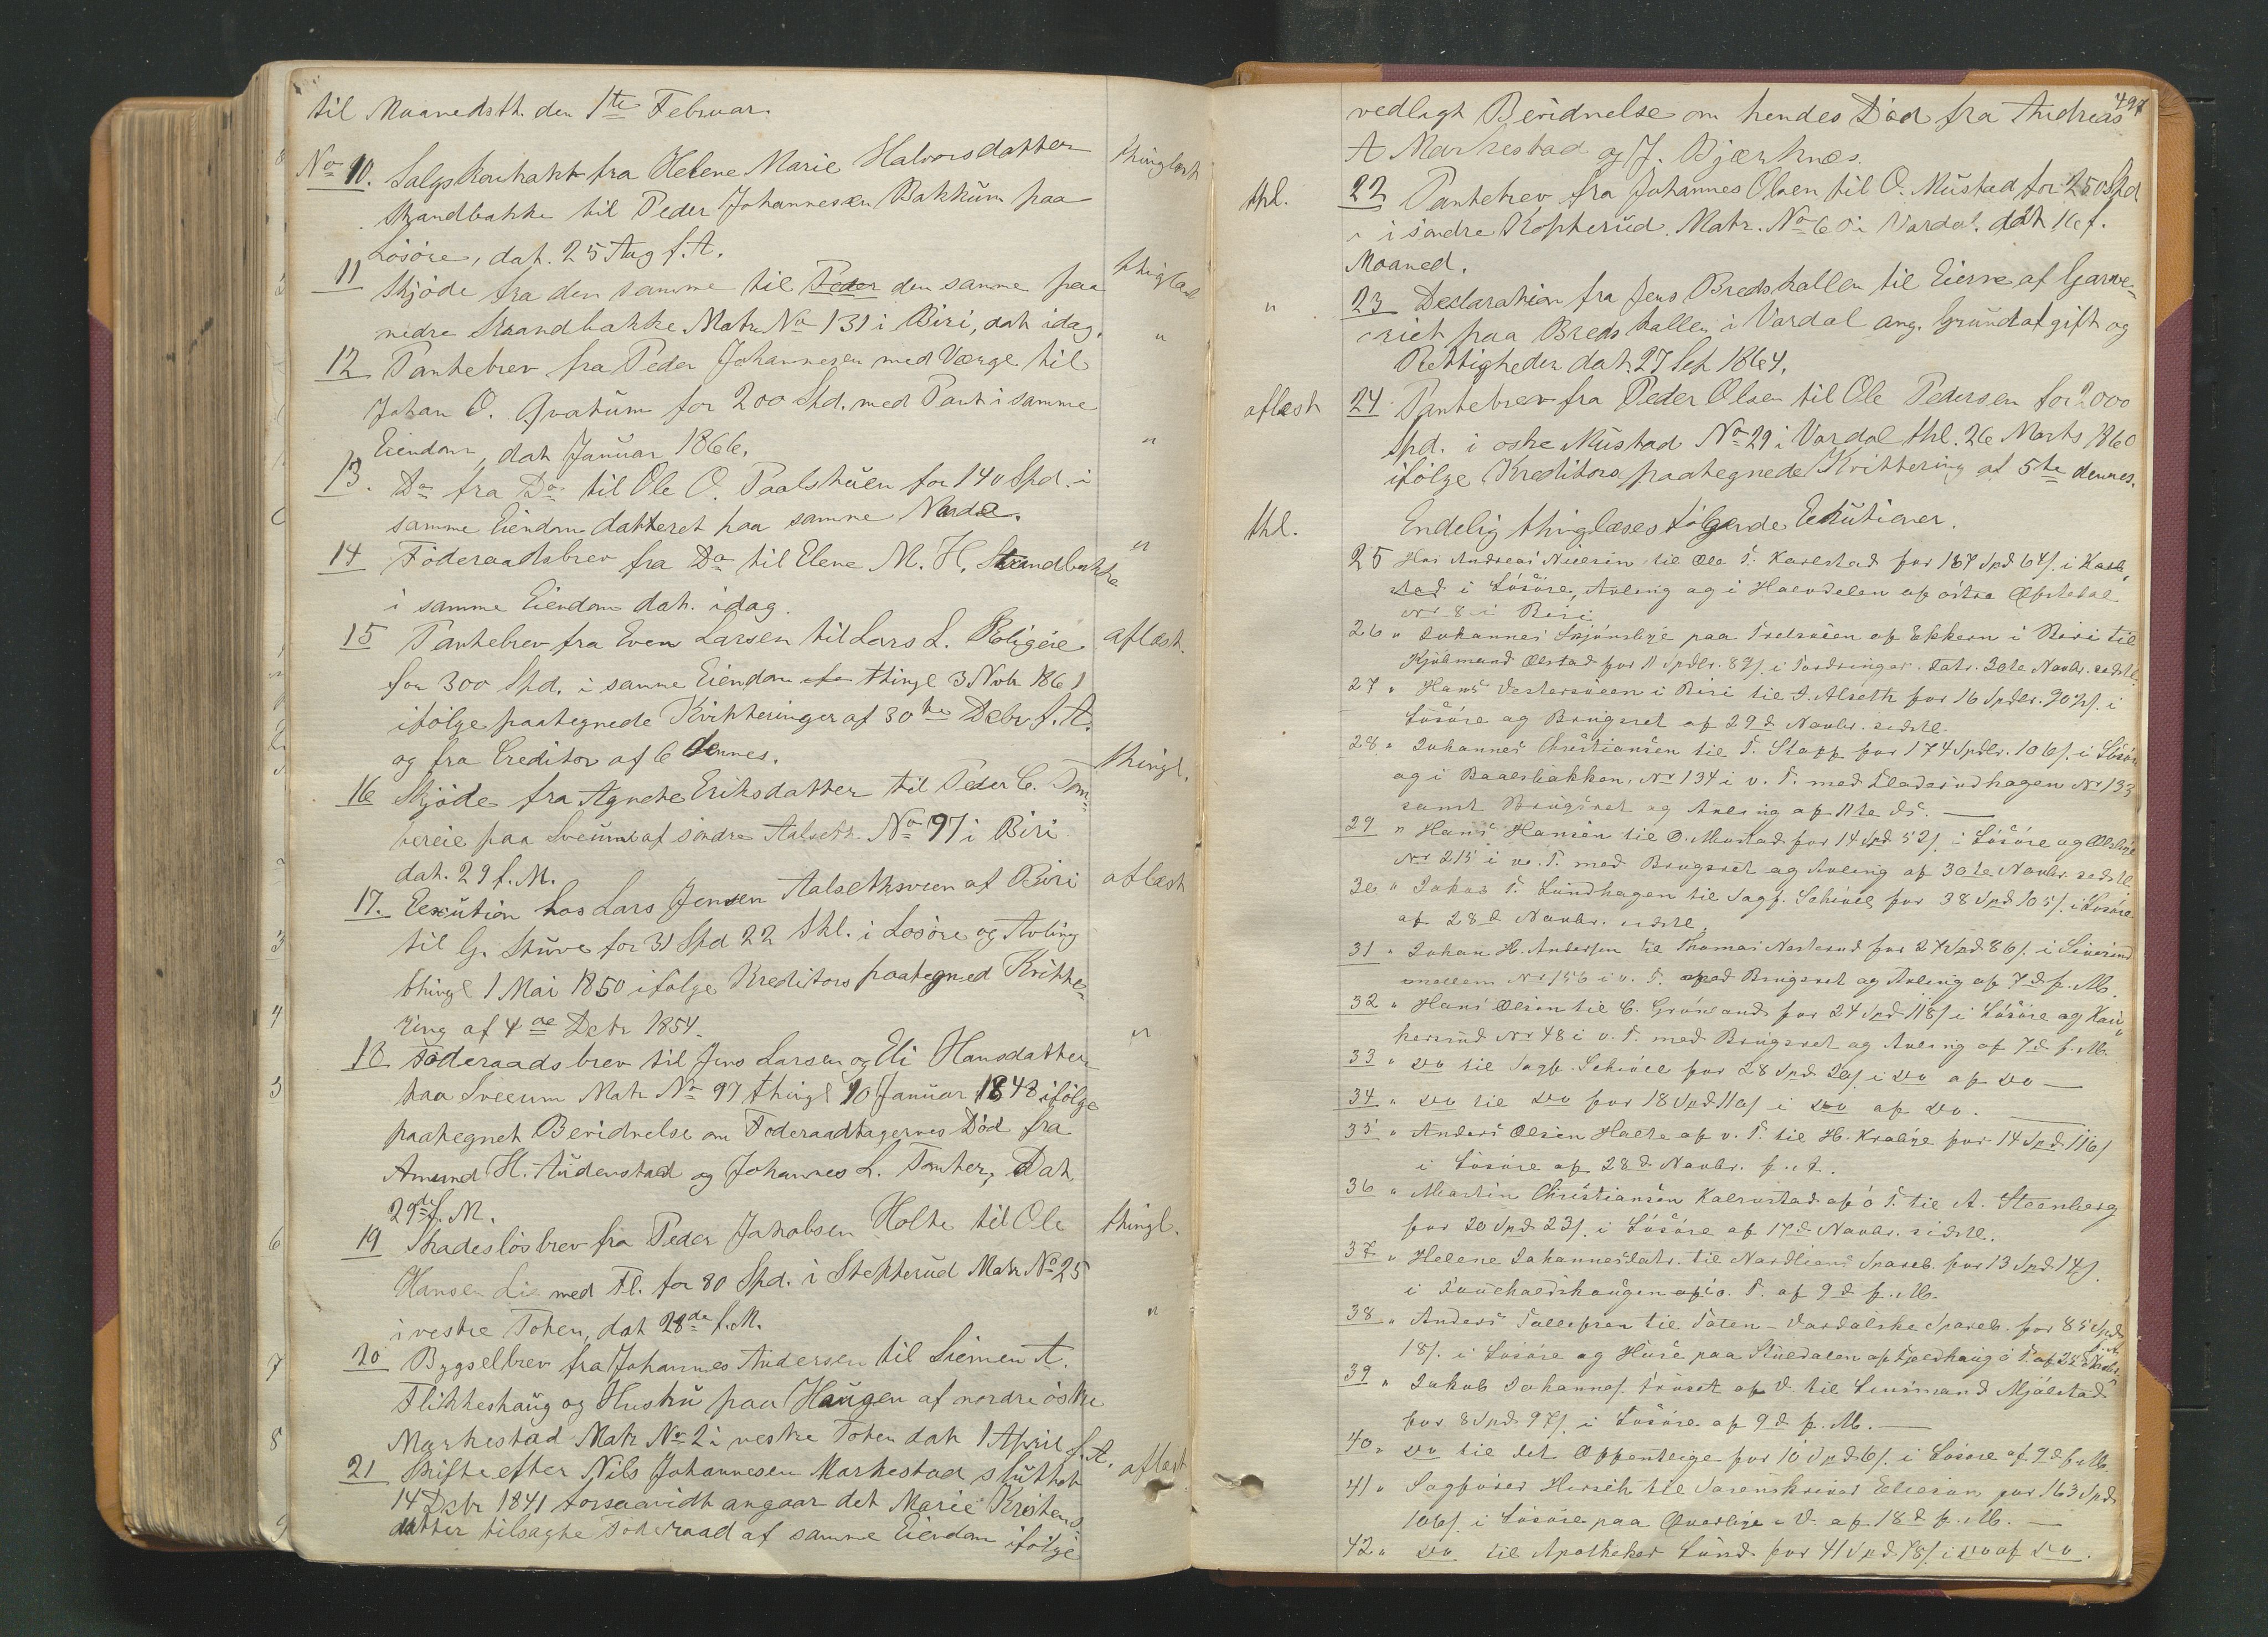 til Maanedsth. den 1te Februar.
No 10. Salgskontrakt fra Helene Marie Halvorsdatter thinglæst
Strandbakke til Peder Johannesen Bakkum paa
Løsøre, dat. 25 Aug f. A.
11 Skjøde fra den samme til Peder den samme paa thinglæst
nedre Strandbakke Matr No 131 i Biri, dat idag. "
12 Pantebrev fra Peder Johannesen med Værge til
Johan O. for 200 Spd. med Pant i samme
Eiendom, dat Januar 1866. "
13. Do fra Do til Ole O. Paalstuen for 140 Spd. i
samme Eiendom datteret paa samme
14 Føderaadsbrev fra Do til Elene M. H. Strandbakke "
i samme Eiendom dat. idag.
15 Pantebrev fra Even Larsen til Lars L. aflæst.
for 300 Spd. i samme Eiendom thingl 3 Novbr 1861
ifølge paategnede Kvitteringer af 30te Debr f. A.
og fra Creditor af 6 dennes.
16 Skjøde fra Agnete Eriksdatter til Peder C. Tom- thingl.
tereie paa Sveum af søndre Aalseth No 97 i Biri
dat. 29 f. M.
17. Execution hos Lars Jensen Aalsethsveen af Biri aflæst
til G. Stuve for 31 Spd 22 Skl. i Løsøre og Avling
thingl 1 Mai 1850 ifølge Kreditors paategned Kvitte-
ring af 4de Debr 1854.
18 Føderaadsbrev til Jens Larsen og Eli Hansdatter "
paa Sveum Matr No 97 thingl 10 Januar 1848 ifølge
paategnet Bevidnelse om Føderaadtagernes Død fra
Amund H. Audenstad og Johannes L. Tomter, Dat
29de f. M.
19 Skadesløsbrev fra Peder Jakobsen Holte til Ole thingl.
Hansen Lie med Fl. for 80 Spd. i Stekterud Matr No 25
i vestre Toten, dat 28de f. M. "
20 Bygselbrev fra Johannes Andersen til Simen A.
Flikkeshaug og Hustru paa Haugen af nordre østre
Markestad Matr No 2 i vestre Toten dat 1 April f. A.
21 Skifte efter Nils Johannesen Markestad sluttet aflæst
14 Debr 1841 forsaavidt angaar det Marie Kristens-
datter tilsagte Føderaad af samme Eiendom ifølge
497
vedlagt Bevidnelse om hendes Død fra Andreas
A Markestad og J. Bjærknæs.
thl. 22 Pantebrev fra Johannes Olsen til O. Mustad for 250 Spd
i søndre Kopperud. Matr. No 60 i Vardal. dat 16 f.
Maaned.
" 23 Declaration fra Jens Bredskallen til Eierne af Garve-
riet paa Bredskallen i Vardal ang. Grundafgift og
Rettigheder dat. 27 Sep 1864.
aflæst 24 Pantebrev fra Peder Olsen til Ole Pedersen for 2000
Spd. i østre Mustad No 29 i Vardal thl. 26 Marts 1860
ifølge Kreditors paategnede Kvittering af 5te dennes.
thl. Endelig thinglæses følgende Exekutioner.
25 Hos Andreas Nielsen til Ole T. Karlstad for 187 Spd 64/ i Karl-
stad i Løsøre, Avling og i Halvdelen af østre
No 8 i Biri
26 " Johannes paa af Ekkern i Biri til
Ølstad for 11 Spdlr. 82/ i Fordringer. datr. 30te Novbr. sidstl.
27 " Hans Vestersveen i Biri til J. Alseth for 16 Spdlr. 90½/. i
Løsøre og Brugsret af 29d Novbr. sidstl.
28 " Johannes Christiansen til T. Stapp for 174 Spdlr. 106/. i Løsøre
og i Baalsbakken, No 134 i v. T. med Fladerudhagen No 133
samt Brugsret og Avling af 11te ds. —
29 " Hans Hansen til O. Mustad for 14 Spd 52/. i Løsøre og
No 215 i v. T. med Brugsret og Avling af 30te Novbr. sidstl.
30 " Jakob T. Lundhagen til Sagf. for 38 Spd 105/. i Løsøre
af 28d Novbr. sidstl.
31 " Johan H. Andersen til Thomas Nesterud for 27 Spd 86/. i
mellem No 156 i v. T. med Brugsret og Avling af 7d f. M.
32 " Hans Olsen til C. Grønland for 24 Spd 118/ i Løsøre og
No 48 i v. T. med Brugsret og Avling af 7d f. M.
33 " do til Sagf. for 28 Spd 20/ i do af do —
34 " do til do for 18 Spd 110/ i do af do. —
35 " Anders Olsen Holte af v. T. til H. Kralye for 14 Spd 116/
i Løsøre af 28d Novbr. f. A.
36 " Martin Christiansen Kalrustad af ø T. til A. Steenberg
for 20 Spd 23/. i Løsøre af 17d Novbr. sidstl.
37 " Helene Johannesdatr. til Nordliens Spareb. for 13 Spd 14/.
i af ø. T. af 9d f. M.
38 " Anders Tollefsen til Toten-Vardalske Spareb. for 85 Spd
18/. i Løsøre og Huse paa Stuedalen af ø T. af 22d Novbr. f. A.
39 " Jakob Johannes. af V. til Lensmand Mjølstad
for 8 Spd 97/. i Løsøre af 9d f. M. —
40 " do til det Offentlige for 10 Spd 6/. i Løsøre af 9d f. M.
41 " Sagfører Hirsch til Sorenskriver Eliesen for 163 Spd
106/. i Løsøre paa i V. af 18d f. M. —
42 " do til Apotheker Lund for 41 Spd 78/. i do af do.